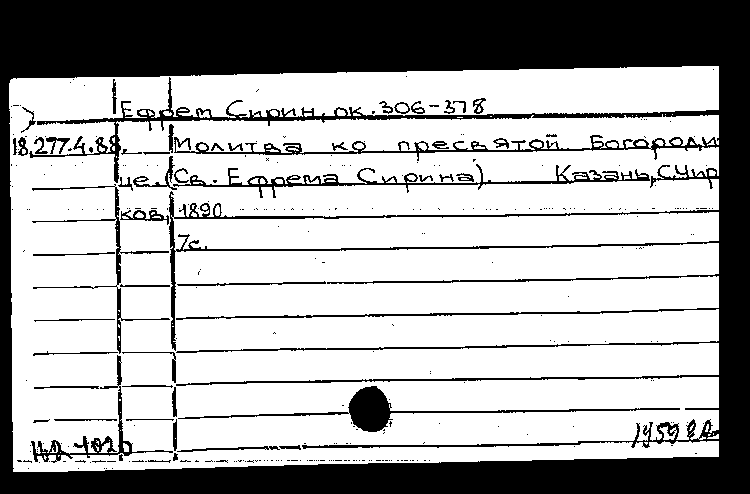 Ефрем Сирин, ок. 306-378
18.277.4.88. Молитва ко пресвятой Богороди
це. (Св. Ефрема Сирина). Казань, С.Чир
ков, 1890.
7с.